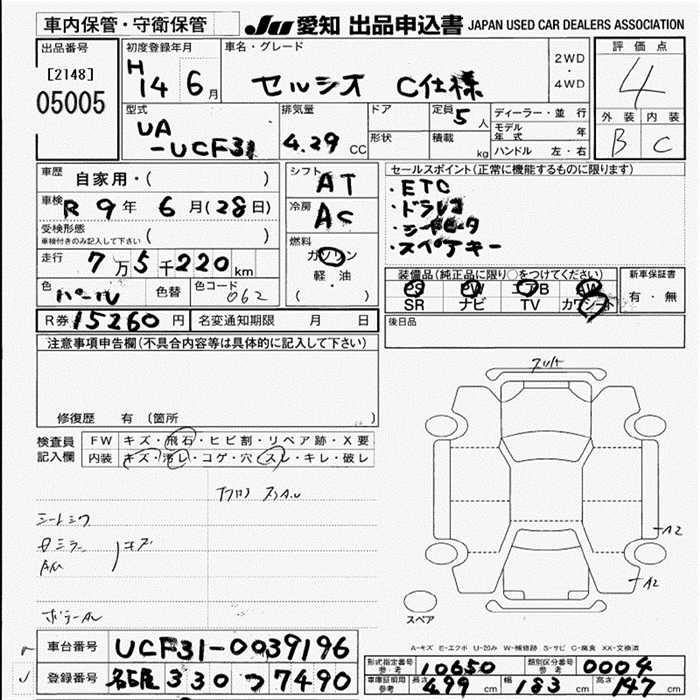 車内保管・守衛保管
JU 愛知 出品申込書 JAPAN USED CAR DEALERS ASSOCIATION
出品番号
[2148]
05005
初度登録年月
H 14 6月
車名・グレード
セルシオ C仕様
2WD
・
4WD
評価点
4
外装 内装
B C
型式
UA
-UCF31
排気量
4.29 CC
ドア
形状
定員 5人
積載 kg
ディーラー・並行
モデル年式 年
ハンドル 左・右
車歴 自家用・( )
車検 R 9年 6月(28日)
受検形態
車検付きのみ記入して下さい ( )
走行 7万5千220km
色 パール 色替
色コード 062
シフト AT
冷房 AC
燃料
ガソリン
軽・油
( )
セールスポイント(正常に機能するものに限ります)
・ETC
・ドラレコ
・シートヒータ
・スペアキー
装備品(純正品に限り○をつけてください)
PS PW エアB AW
SR ナビ TV カワシート
新車保証書
有・無
後日品
R券 15260円 名変通知期限 月 日
注意事項申告欄(不具合内容等は具体的に記入して下さい)
修復歴 有 (箇所 )
検査員
記入欄
FW キズ・飛石・ヒビ割・リペア跡・X要
内装 キズ・汚レ・コゲ・穴・スレ・キレ・破レ
シートシワ
キズ
A2
A2
スペア
A-キズ E-エクボ U-凹み W-補修跡 S-サビ C-腐食 XX-交換済
車台番号 UCF31-0039196
登録番号 名古屋 330 つ 7490
形式指定番号 参考 10650 類別区分番号 参考 0004
車庫証明用 参考 長さ 499cm 幅 183cm 高さ 147cm